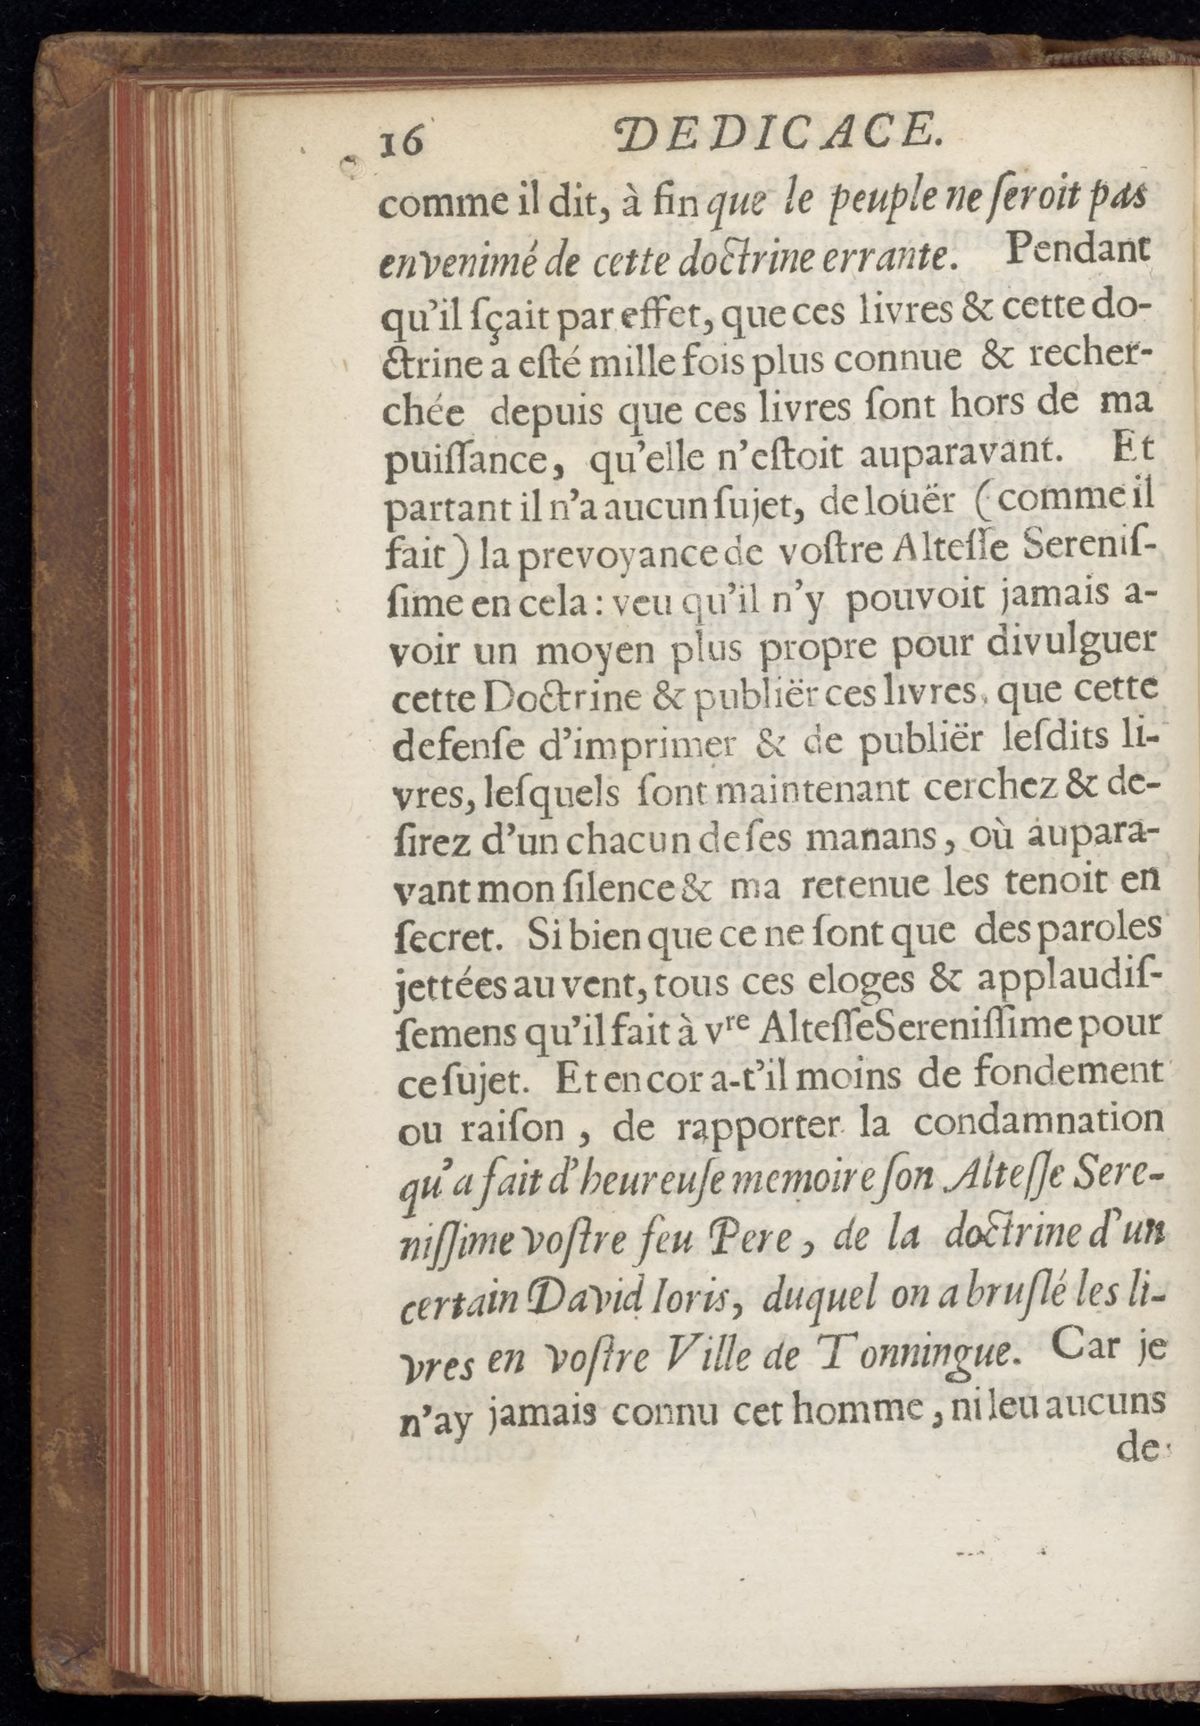 16 DEDICACE.
comme il dit, à fin que le peuple ne ſeroit pas
envenimé de cette doctrine errante. Pendant
qu'il ſçait par effet, que ces livres & cette do-
ctrine a eſté mille fois plus connue & recher-
chée depuis que ces livres ſont hors de ma
puiſſance, qu'elle n'eſtoit auparavant. Et
partant il n'a aucun ſujet, de louër (comme il
fait) la prevoyance de voſtre Alteſſe Sereniſ-
ſime en cela: veu qu'il n'y pouvoit jamais a-
voir un moyen plus propre pour divulguer
cette Doctrine & publiër ces livres, que cette
defenſe d'imprimer & de publiër leſdits li-
vres, leſquels ſont maintenant cerchez & de-
ſirez d'un chacun de ſes manans, où aupara-
vant mon ſilence & ma retenue les tenoit en
ſecret. Si bien que ce ne ſont que des paroles
jettées au vent, tous ces eloges & applaudiſ-
ſemens qu'il fait à vre Alteſſe Sereniſſime pour
ce ſujet. Et encor a-t'il moins de fondement
ou raiſon, de rapporter la condamnation
qu'a fait d'heureuſe memoire ſon Alteſſe Sere-
niſſime voſtre feu Pere, de la doctrine d'un
certain David Ioris, duquel on a bruſlé les li-
vres en voſtre Ville de Tonningue. Car je
n'ay jamais connu cet homme, ni leu aucuns
de